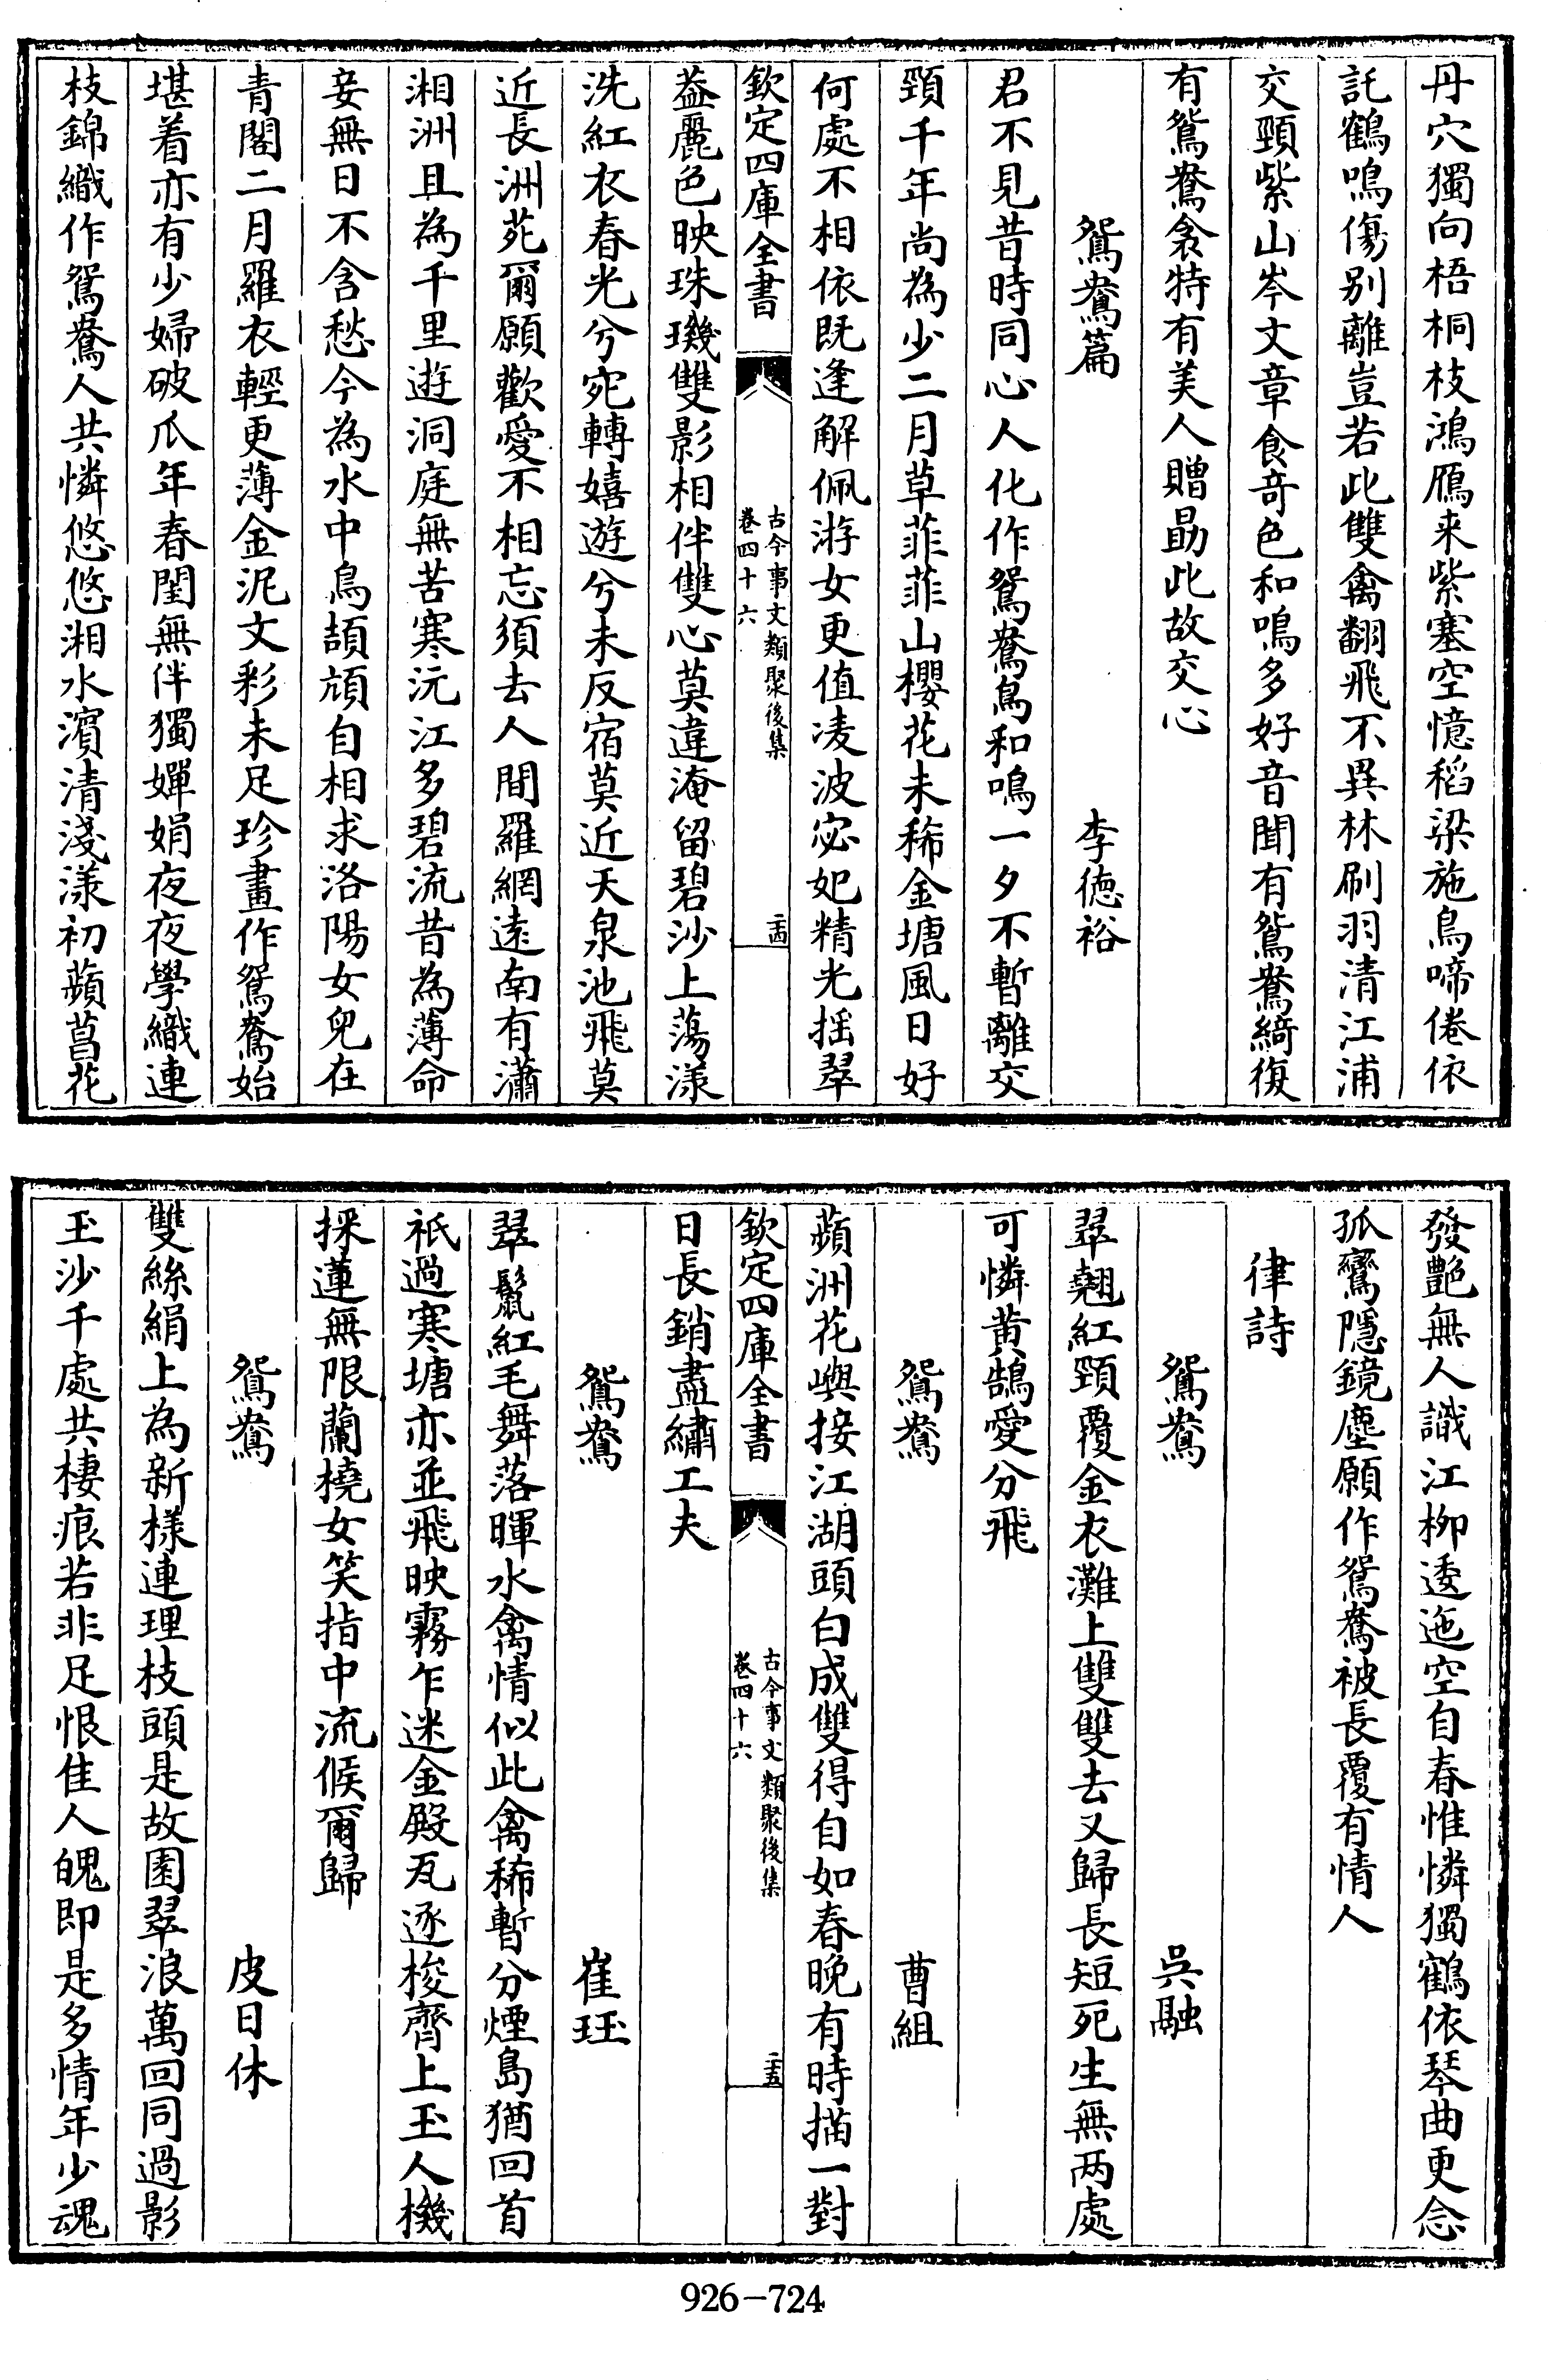 丹穴獨向梧桐枝鴻鴈来紫塞空憶稻梁施鳥啼倦依
託鶴鳴傷别離豈若此雙禽翻飛不異林刷羽清江浦
交頸紫山岑文章食竒色和鳴多好音聞有鴛鴦綺復
有鴛鴦衾特有美人贈勗此故交心
鴛鴦篇 李徳裕
君不見昔時同心人化作鴛鴦鳥和鳴一夕不暫離交
頸千年尚為少二月草菲菲山櫻花未稀金塘風日好
何處不相依既逢解佩游女更值凌波宓妃精光揺翠
欽定四庫全書 古今事文類聚後集 卷四十六 二十四
葢麗色映珠璣雙影相伴雙心莫違淹留碧沙上蕩漾
洗紅衣春光兮宛轉嬉遊兮未反宿莫近天泉池飛莫
近長洲苑爾願歡愛不相忘須去人間羅網遠南有瀟
湘洲且為千里遊洞庭無苦寒沅江多碧流昔為薄命
妾無日不含愁今為水中鳥頡頏自相求洛陽女兒在
青閣二月羅衣輕更薄金泥文彩未足珍畫作鴛鴦始
堪着亦有少婦破瓜年春閨無伴獨嬋娟夜夜學織連
枝錦織作鴛鴦人共憐悠悠湘水濱清淺漾初蘋菖花
發艶無人識江栁逶迤空自春惟憐獨鶴依琴曲更念
孤鸞隱鏡塵願作鴛鴦被長覆有情人
律詩
鴛鴦 吳融
翠翹紅頸覆金衣灘上雙雙去又歸長短死生無两處
可憐黄鵠愛分飛
鴛鴦 曹組
蘋洲花嶼接江湖頭白成雙得自如春晚有時描一對
欽定四庫全書 古今事文類聚後集 卷四十六 二十五
日長銷盡繡工夫
鴛鴦 崔珏
翠鬛紅毛舞落暉水禽情似此禽稀暫分煙島猶回首
祇過寒塘亦並飛映霧乍迷金殿瓦逐梭齊上玉人機
採蓮無限蘭橈女笑指中流候爾歸
鴛鴦 皮日休
雙絲絹上為新樣連理枝頭是故園翠浪萬回同過影
玉沙千處共棲痕若非足恨佳人魄即是多情年少魂
926-724